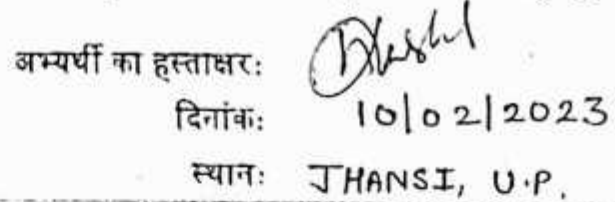 अभ्यर्थी का हस्ताक्षर:
दिनांक: 10/02/2023
स्थान: JHANSI, U.P.